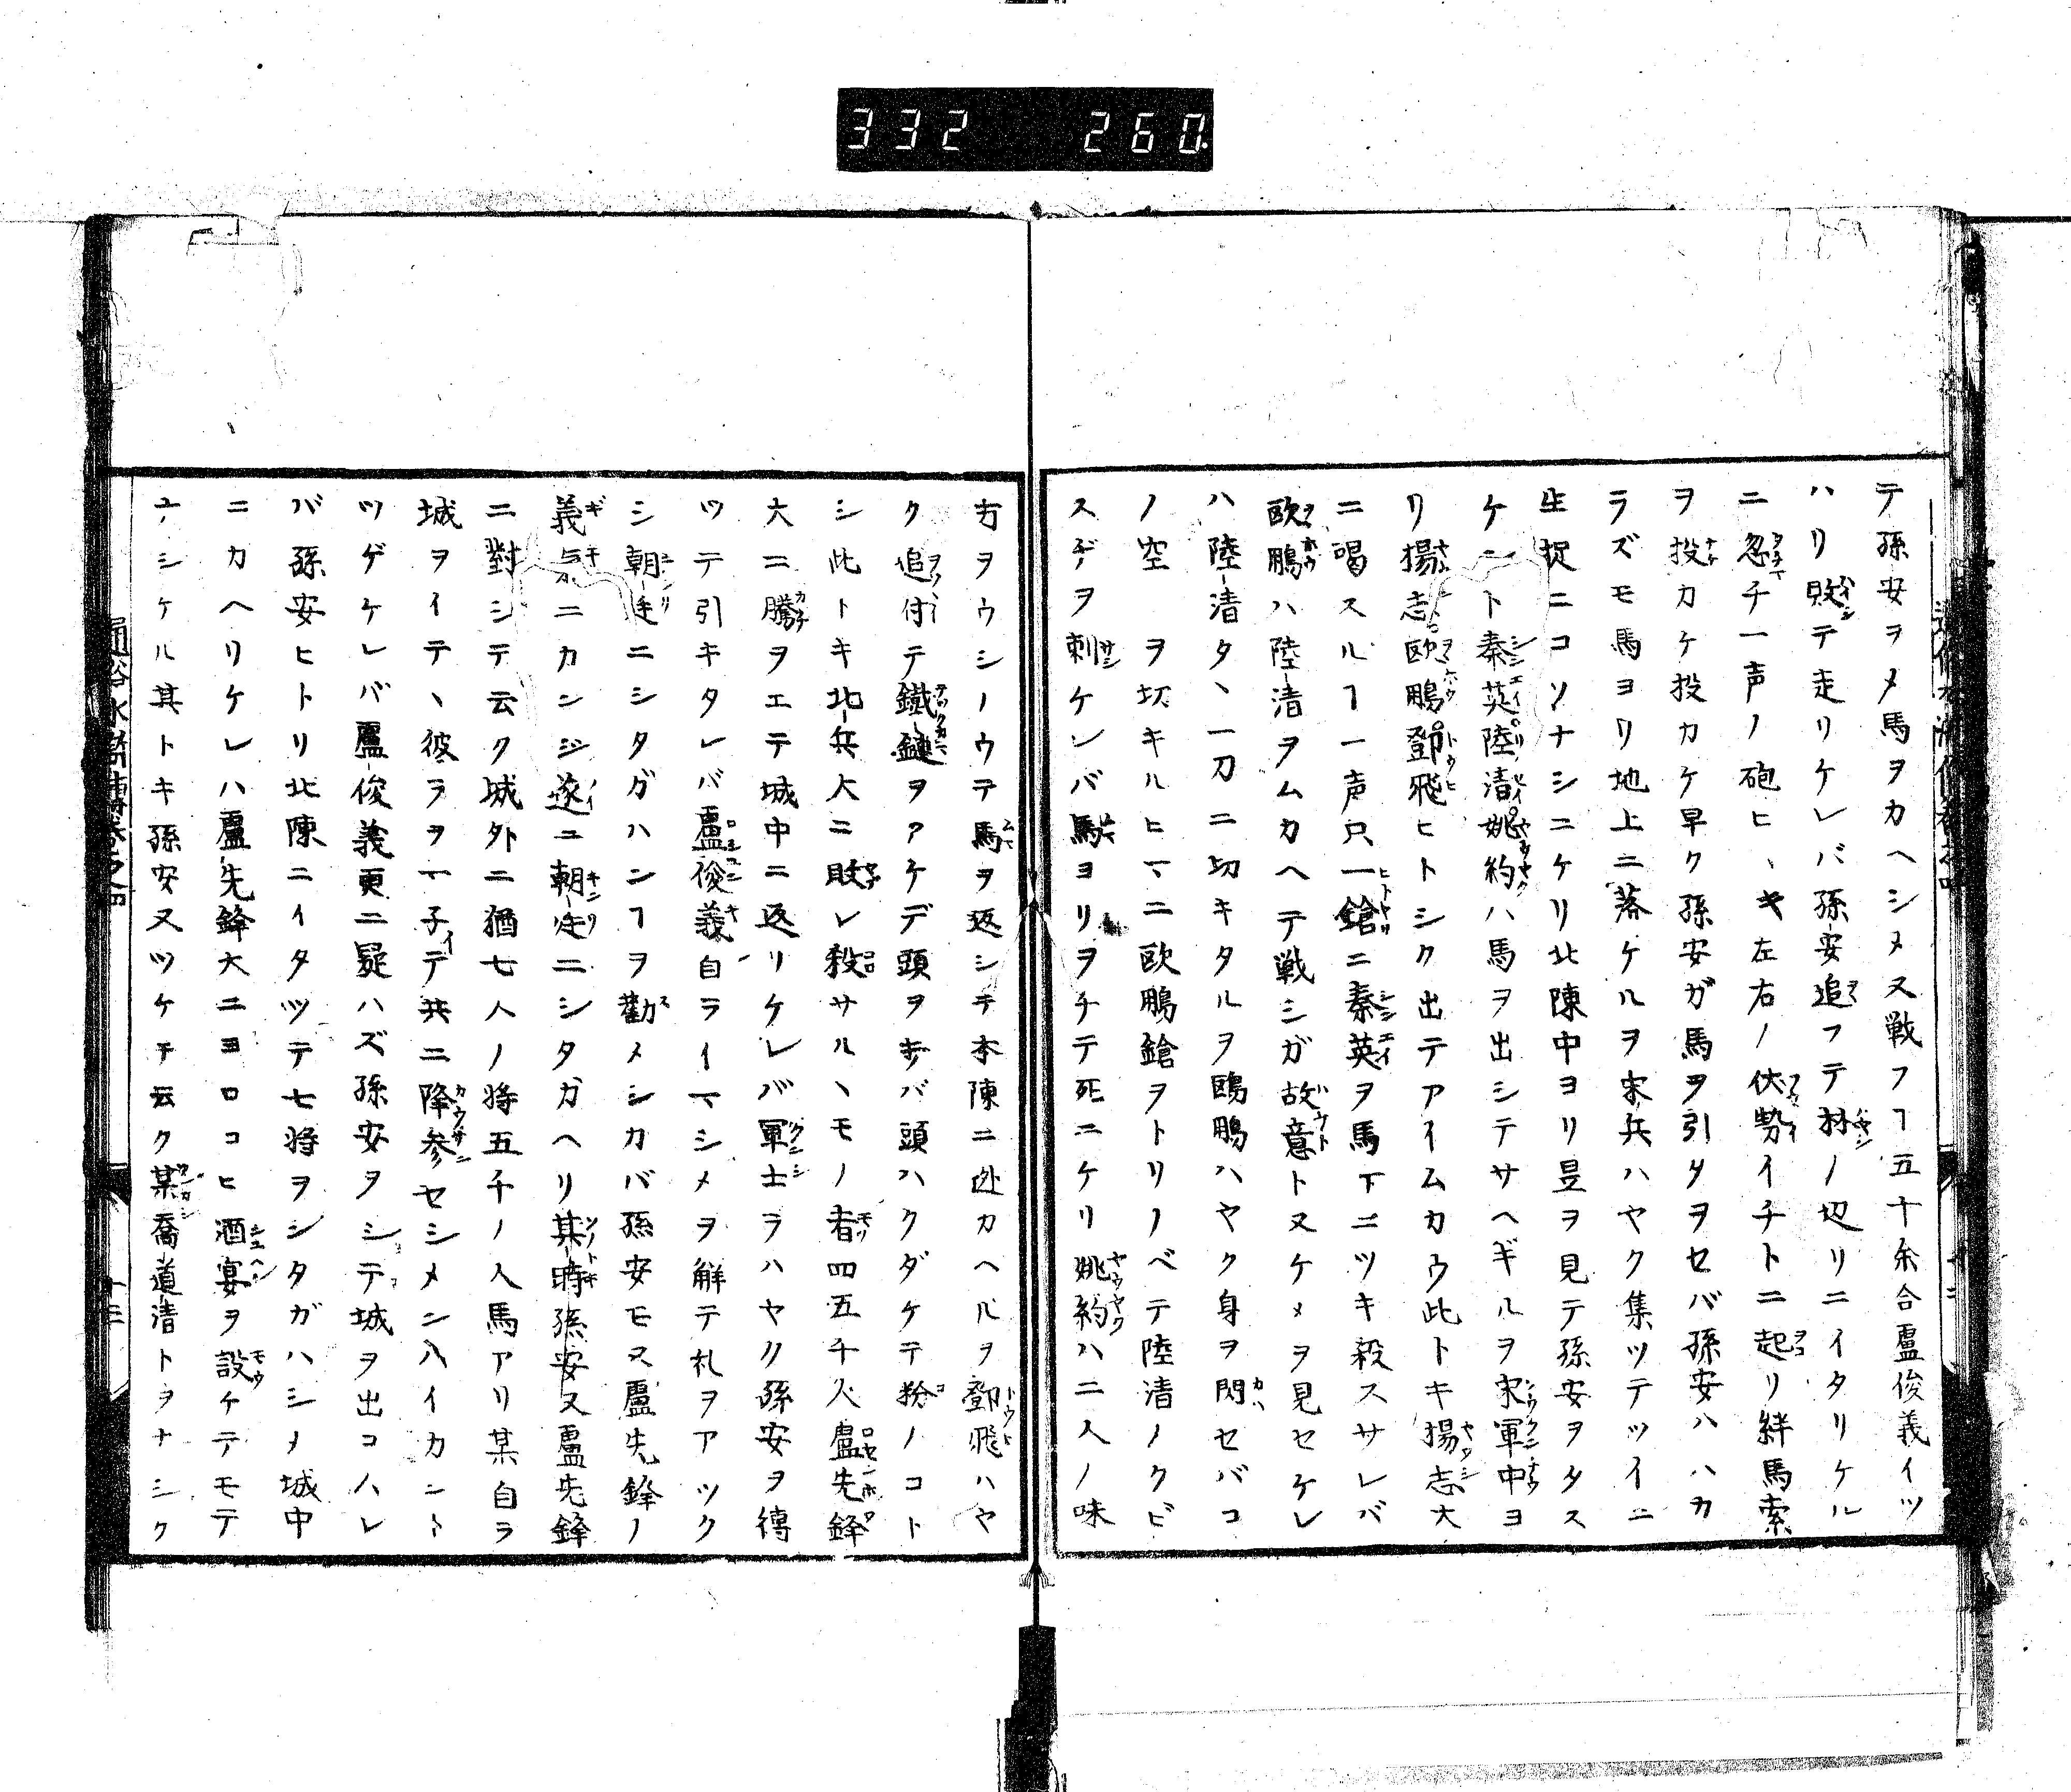 332 260
テ孫安ヲメ馬ヲカヘシメ又戦フヿ五十余合盧俊義イツ
ハリ敗テ走リケレバ孫安追フテ林ノ辺リニイタリケル
ニ忽チ一声ノ砲ヒヽキ左右ノ伏勢イチトニ起リ絆馬索
ヲ投カケ投カケ早ク孫安ガ馬ヲ引タヲセバ孫安ハハカ
ラズモ馬ヨリ地上ニ落ケルヲ宋兵ハヤク集ツテツイニ
生捉ニコソナシニケリ北陳中ヨリ昱ヲ見テ孫安ヲタス
ケント秦英陸清姚約ハ馬ヲ出シテサヘギルヲ宋軍中ヨ
リ揚志欧鵬鄧飛ヒトシク出テアイムカウ此トキ揚志大
ニ喝スルヿ一声只一鎗ニ秦英ヲ馬下ニツキ殺スサレバ
欧鵬ハ陸清ヲムカヘテ戦シガ故意トヌケメヲ見セケレ
ハ陸清タヽ一刀ニ切キタルヲ鴎鵬ハヤク身ヲ閃セバコ
ノ空ヲ切キルヒマニ欧鵬鎗ヲトリノベテ陸清ノクビ
スヂヲ刺ケレバ馬ヨリヲチテ死ニケリ姚約ハ二人ノ味
方ヲウシノウテ馬ヲ返シテ本陳ニ逃カヘルヲ鄧飛ハヤ
ク追付テ鐵鏈ヲアケデ頭ヲ打バ頭ハクダケテ粉ノコト
シ此トキ北兵大ニ敗レ殺サルヽモノ者四五千人盧先鋒
大ニ勝ヲエテ城中ニ返リケレバ軍士ラハヤク孫安ヲ得
ツテ引キタレバ盧俊義自ライマシメヲ解テ礼ヲアツク
シ朝廷ニシタガハンヿヲ勸メシカバ孫安モ又盧先鋒ノ
義気ニカンジ遂ニ朝廷ニシタガヘリ其時孫安又盧先鋒
ニ對シテ云ク城外ニ猶七人ノ将五千ノ人馬アリ某自ラ
城ヲイテヽ彼ラヲマ子イテ共ニ降参セシメン八イカント
ツゲケレバ盧俊義更ニ疑ハズ孫安ヲシテ城ヲ出コハレ
バ孫安ヒトリ北陳ニイタツテ七将ヲシタガハシメ城中
ニカヘリケレハ盧先鋒大ニヨロコヒ酒宴ヲ設ケテモテ
ナシケル其トキ孫安又ツケテ云ク某喬道清トヲナシク
通俗水滸傳巻之四 十三